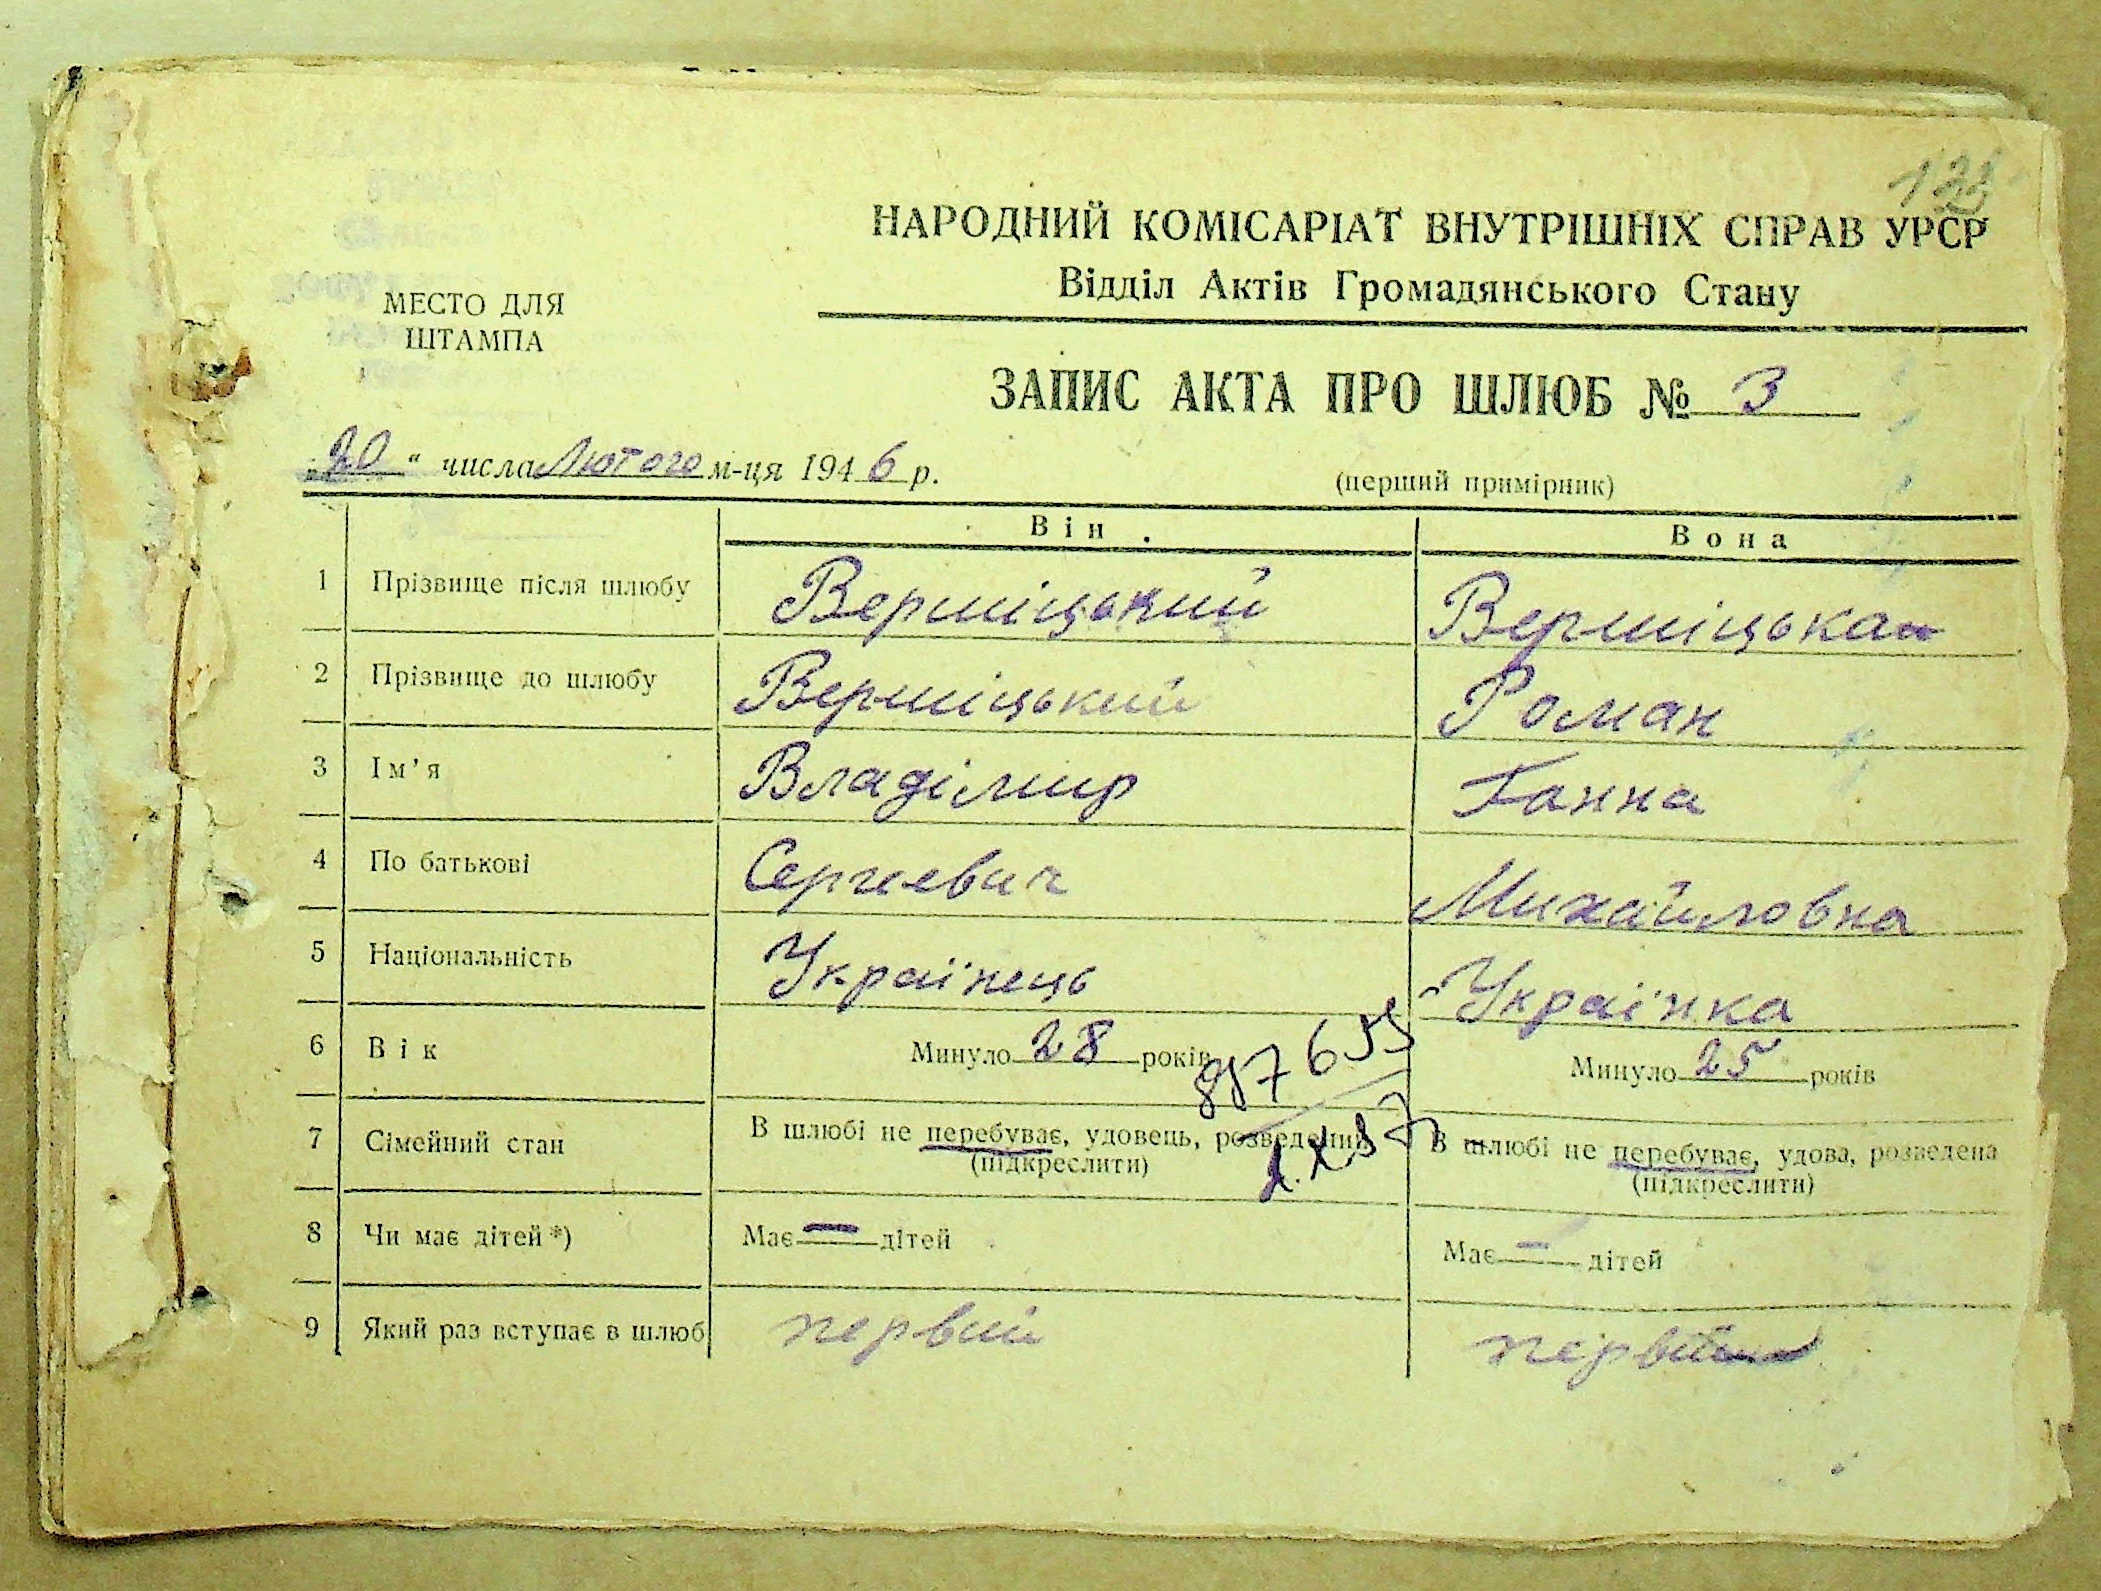 123
НАРОДНИЙ КОМІСАРІАТ ВНУТРІШНІХ СПРАВ УРСР
Відділ Актів Громадянського Стану
МЕСТО ДЛЯ
ШТАМПА
ЗАПИС АКТА ПРО ШЛЮБ № 3
„20“ числа Лютого м-ця 1946 р.
(перший примірник)
Він
Вона
1 Прізвище після шлюбу Вершіцький Вершіцька
2 Прізвище до шлюбу Вершіцький Роман
3 Ім’я Владімир Ганна
4 По батькові Сергиевич Михайловна
5 Національність Українець Українка
6 Вік Минуло 28 років Минуло 25 років
7 Сімейний стан В шлюбі не перебуває, удовець, розведений В шлюбі не перебуває, удова, розведена
(підкреслити) (підкреслити)
8 Чи має дітей*) Має — дітей Має — дітей
9 Який раз вступає в шлюб первий первий